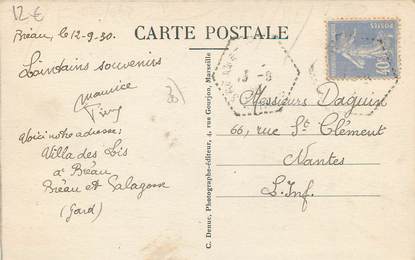 12€
CARTE POSTALE
Bréau, le 12-9.30.
Lointains souvenirs
Maurice
Voici notre adresse;
Villa des Lis
à Bréau
Bréau et Salagosse
(Gard)
C. Denus, Photographe-éditeur, 4, rue Goujon, Marseille
POSTES
40c
13-9
Messieurs Daguin
66, rue St Clément
Nantes
L. Inf.